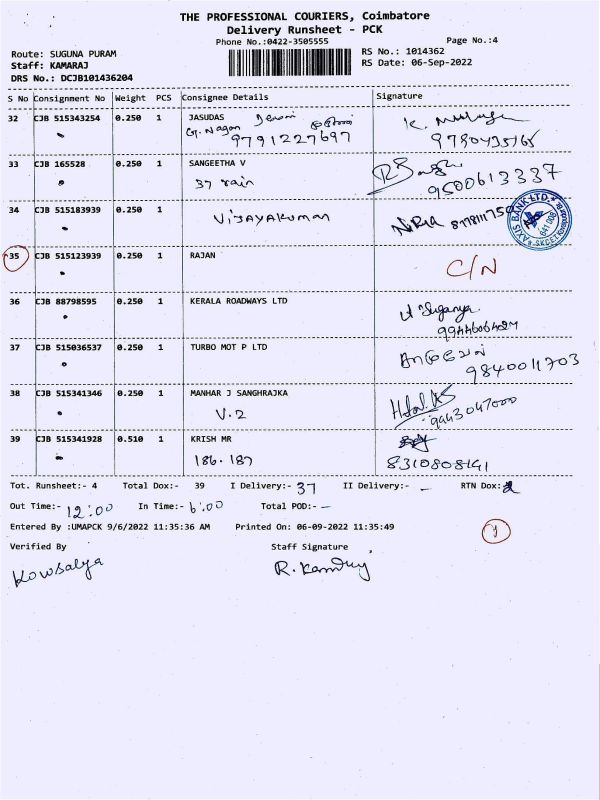 THE PROFESSIONAL COURIERS, Coimbatore
Delivery Runsheet - PCK
Phone No.:0422-3505555
Page No.:4
Route: SUGUNA PURAM
RS No.: 1014362
Staff: KAMARAJ
RS Date: 06-Sep-2022
DRS No.: DCJB101436204
S No Consignment No Weight PCS Consignee Details Signature
32 CJB 515343254 0.250 1 JASUDAS
Nagar
9791227697
33 CJB 165528 0.250 1 SANGEETHA V
9500613337
34 CJB 515183939 0.250 1
VIJAYAKUMAR
AXIS BANK LTD.
641 008
35 CJB 515123939 0.250 1 RAJAN
C/N
36 CJB 88798595 0.250 1 KERALA ROADWAYS LTD
Suganya
37 CJB 515036537 0.250 1 TURBO MOT P LTD
9840011703
38 CJB 515341346 0.250 1 MANHAR J SANGHRAJKA
V.2
9443047000
39 CJB 515341928 0.510 1 KRISH MR
186.187
8310808191
Tot. Runsheet:- 4 Total Dox:- 39 I Delivery:- 37 II Delivery:- - RTN Dox:-
Out Time:- 12:00 In Time:- 6:00 Total POD:- -
Entered By :UMAPCK 9/6/2022 11:35:36 AM Printed On: 06-09-2022 11:35:49
Verified By Staff Signature
Kowsalya